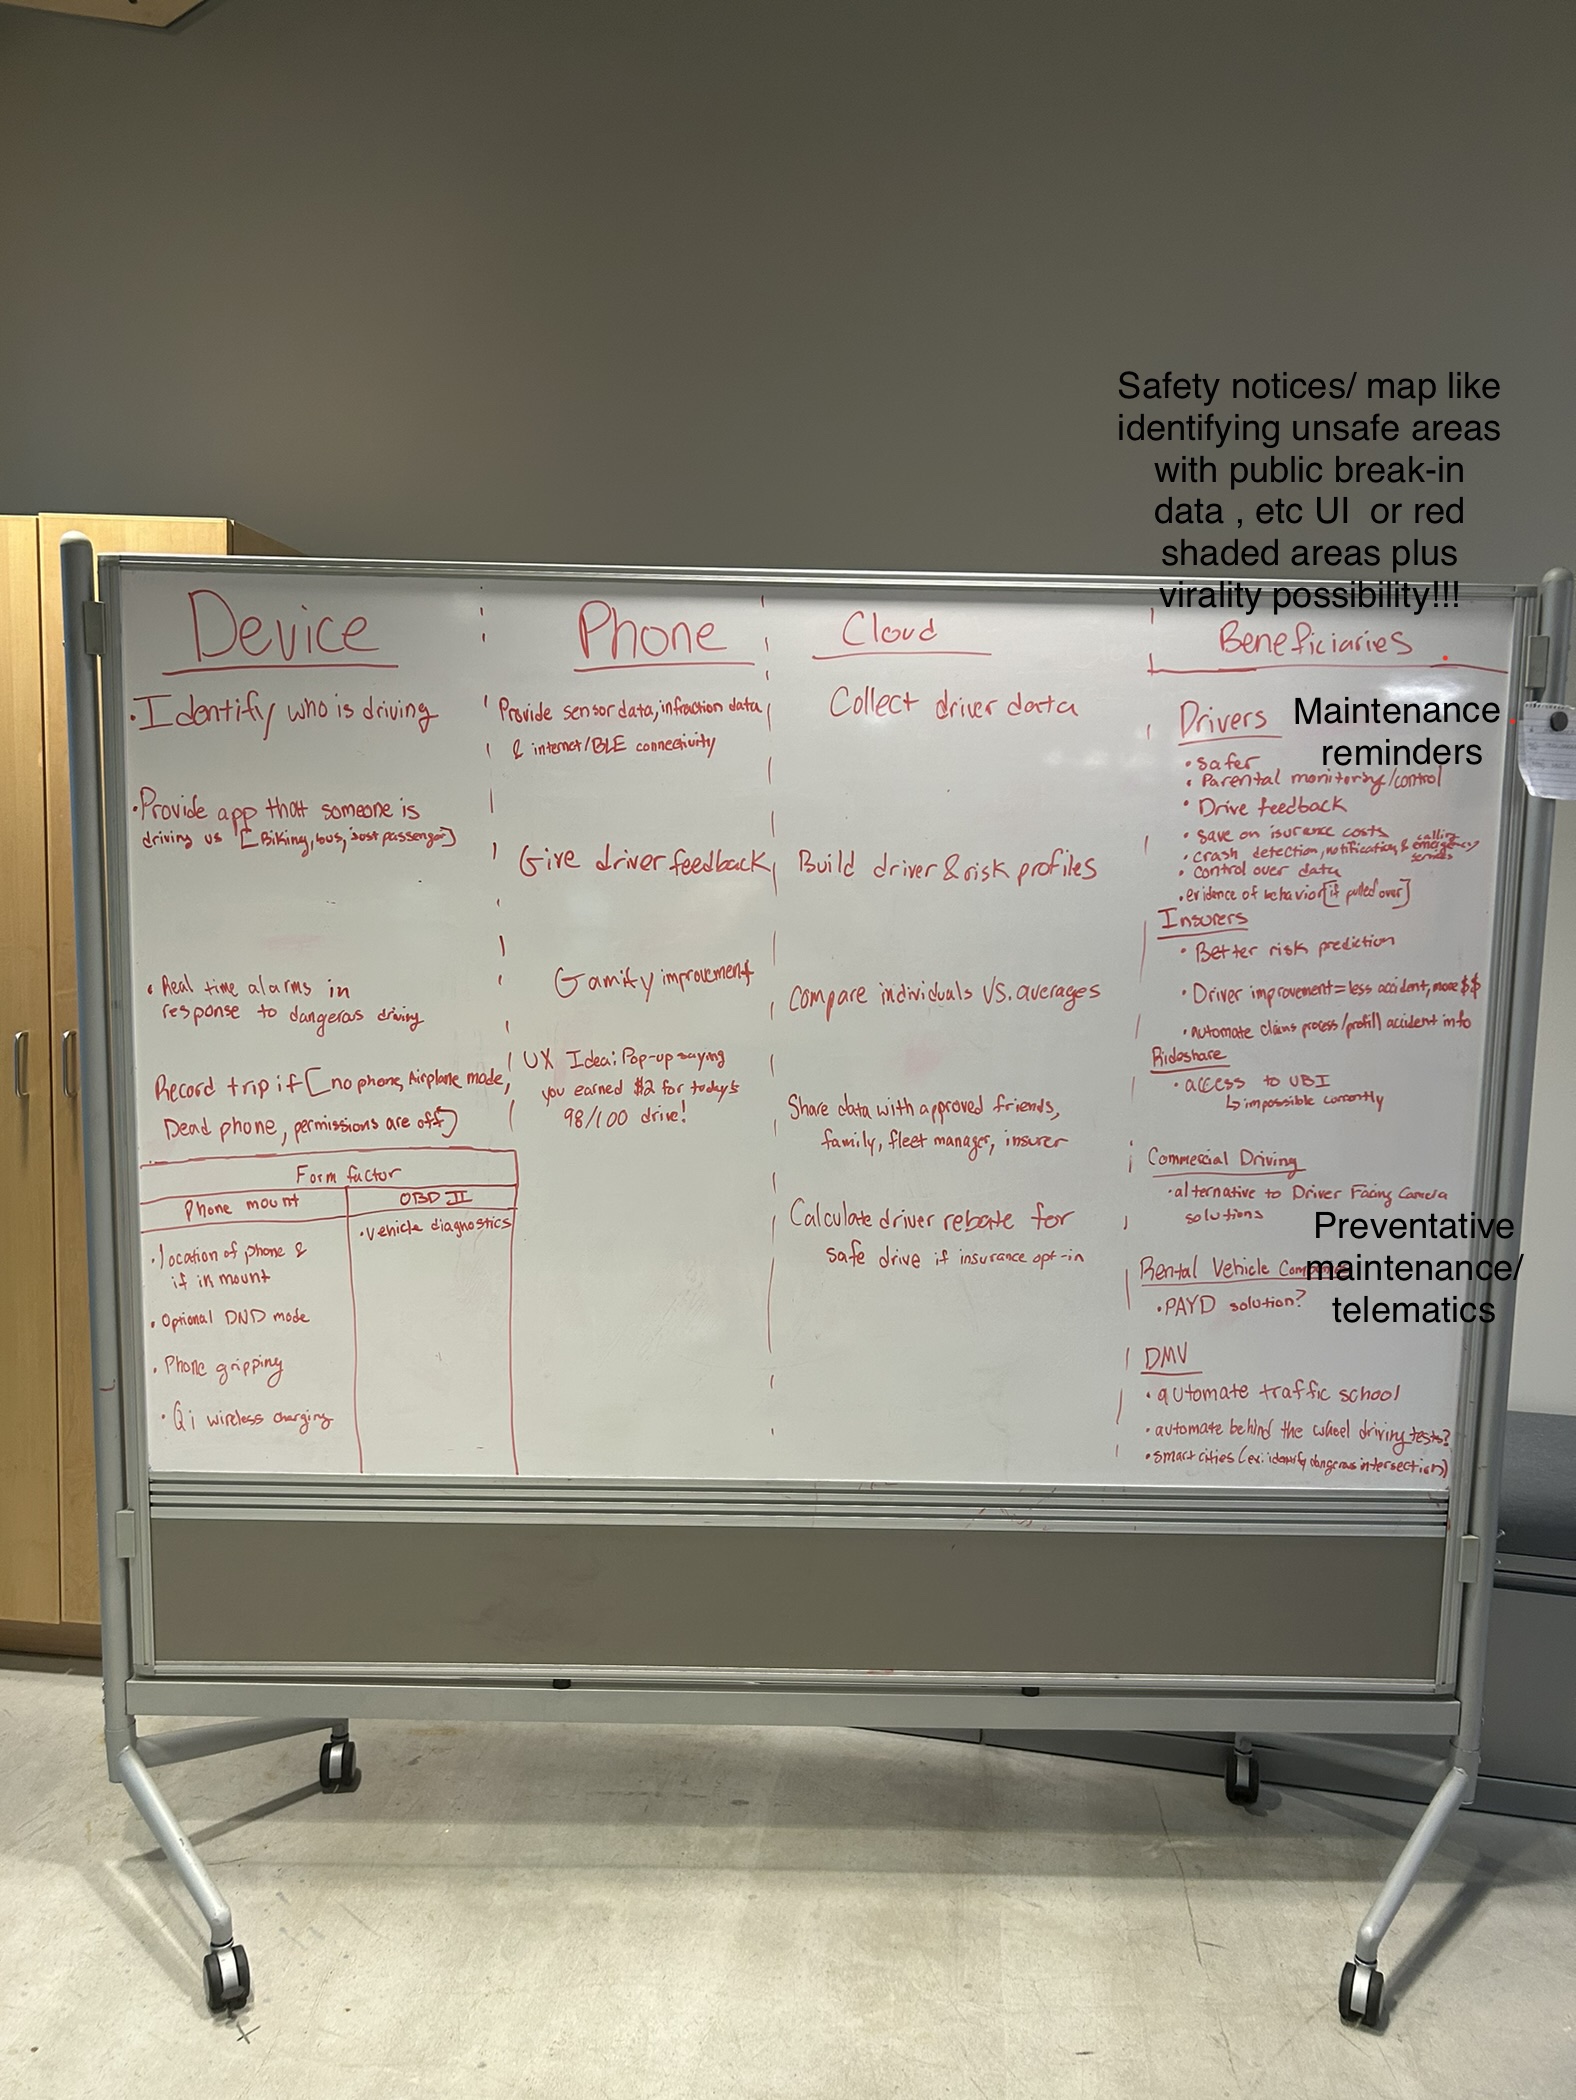 Safety notices/ map like
identifying unsafe areas
with public break-in
data , etc UI  or red
shaded areas plus
virality possibility!!!
Device
• Identify who is driving
• Provide app that someone is
driving us [Biking, bus, just passenger]
• Real time alarms in
response to dangerous driving
Record trip if [no phone, Airplane mode,
Dead phone, permissions are off]
Form factor
Phone mount
• location of phone &
if in mount
• Optional DND mode
• Phone gripping
• Qi wireless charging
OBD II
• vehicle diagnostics
Phone
Provide sensor data, infraction data
& internet/BLE connectivity
Give driver feedback
Gamify improvement
UX Idea: Pop-up saying
you earned $2 for today's
98/100 drive!
Cloud
Collect driver data
Build driver & risk profiles
Compare individuals VS. averages
Share data with approved friends,
family, fleet manager, insurer
Calculate driver rebate for
safe drive if insurance opt-in
Beneficiaries
Drivers
Maintenance
reminders
• safer
• Parental monitoring/control
• Drive feedback
• save on isurence costs
• crash detection, notification, & calling emergency services
• control over data
• evidence of behavior [if pulled over]
Insurers
• Better risk prediction
• Driver improvement = less accident, more $$
• automate claims process/profill accident info
Rideshare
• access to UBI
↳ impossible currently
Commercial Driving
• alternative to Driver Facing Camera
solutions
Preventative
maintenance/
telematics
Rental Vehicle
• PAYD solution?
DMV
• automate traffic school
• automate behind the wheel driving tests?
• smart cities (ex: identify dangerous intersection)